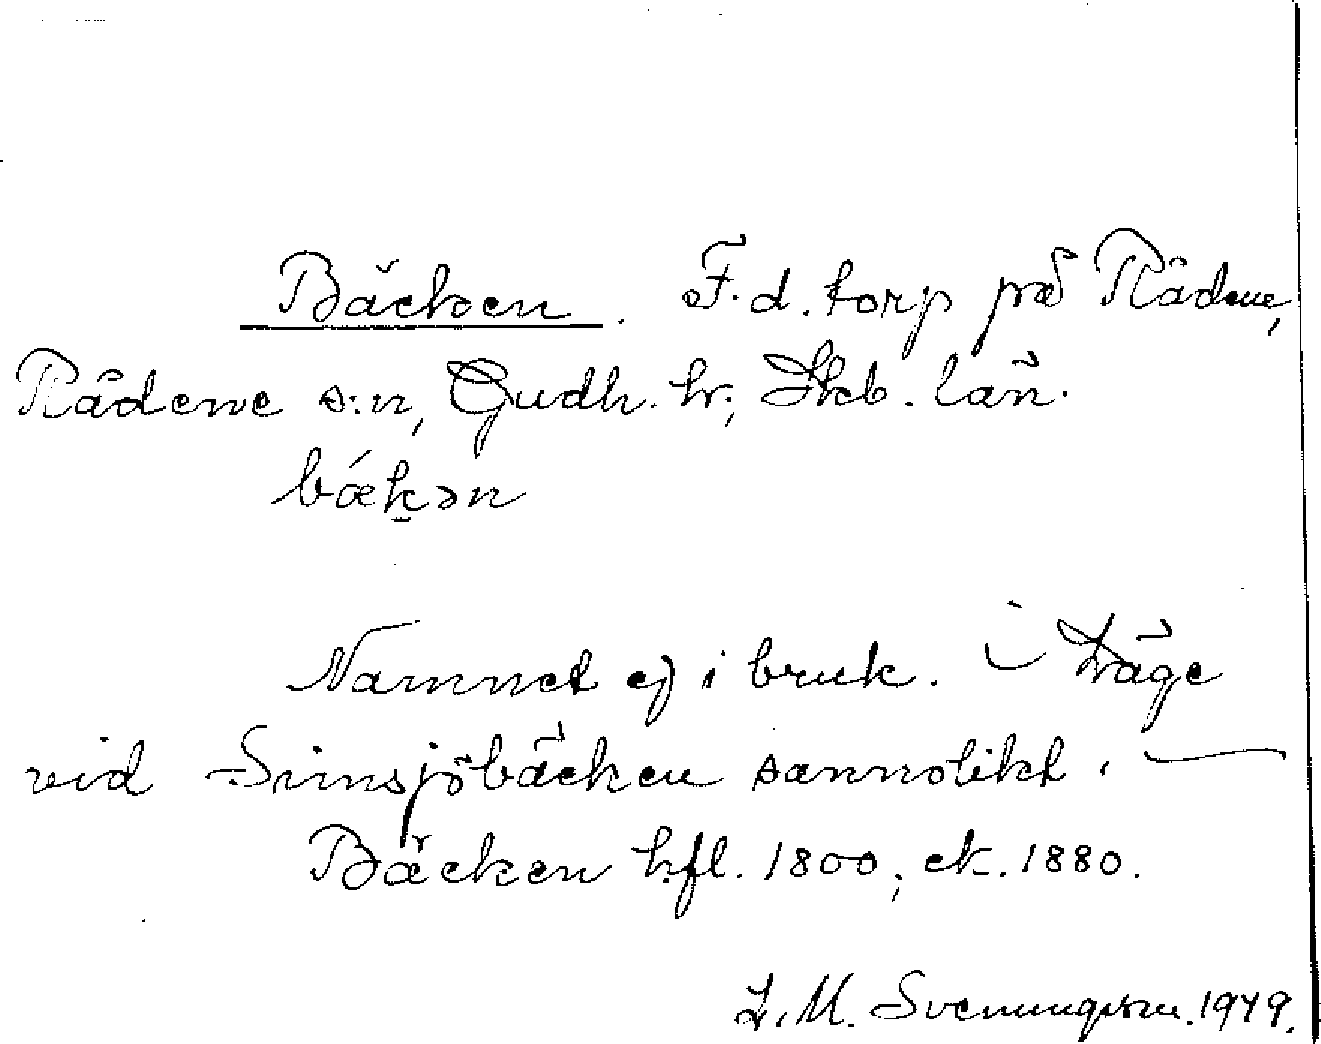 Bäcken. F.d. torp på Rådene,
Rådene s:n, Gudh. hr; Skb. län.
bǽk̲ən
Namnet ej i bruk. – Läge
vid Simsjöbäcken sannolikt. –
Bäcken hfl. 1800; ek. 1880.
L. M. Svenungsson. 1949.